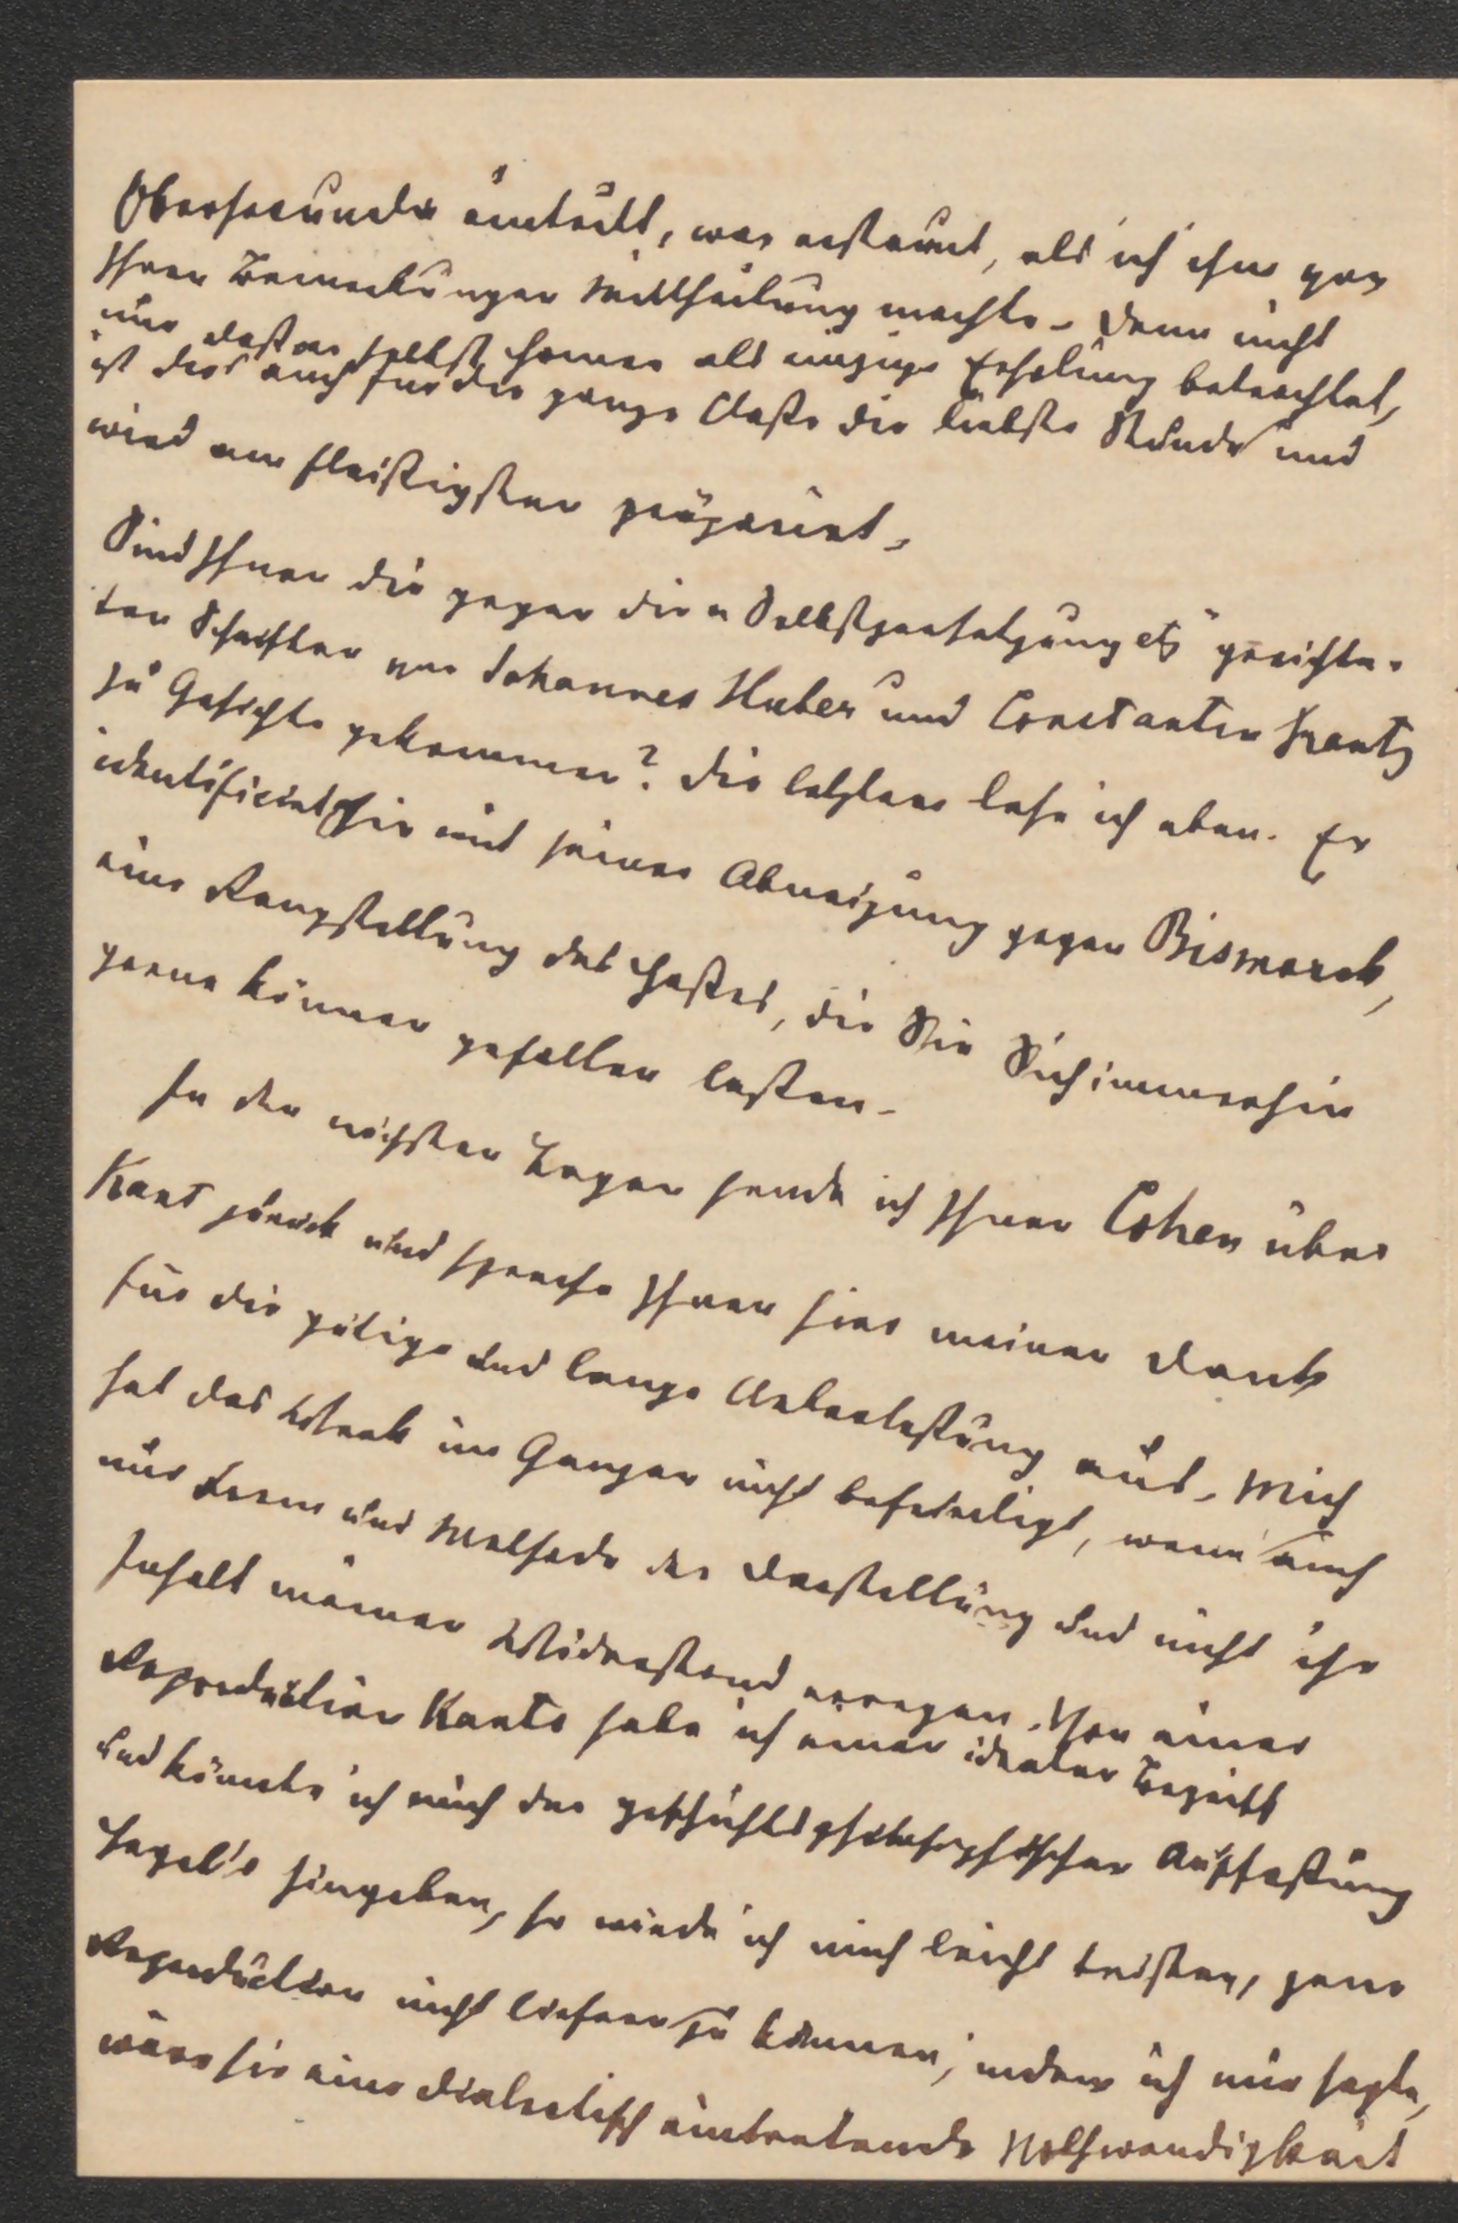 Obersecunda eintritt, war erstaunt, als ich ihm von
Ihren Bemerkungen Mittheilung machte. Denn nicht
nur daß er selbst Homer als einzige Erholung betrachtet,
ist dies auch für die ganze Claße die liebste Stunde und
wird am fleißigsten präparirt.
Sind Ihnen die gegen die „Selbstzersetzung etc" gerichte-
ten Schriften von Johannes Huber und Constantin Frantz
zu Gesichte gekommen? Die letztere lese ich eben. Er
identificirt Sie mit seiner Abneigung gegen Bismarck,
eine Rangstellung des Haßes, die Sie Sich immerhin
gerne können gefallen laßen.
In den nächsten Tagen sende ich Ihnen Cohen über
Kant zurück und spreche Ihnen hier meinen Dank
für die gütige und lange Ueberlaßung aus. Mich
hat das Werk im Ganzen nicht befriedigt, wenn auch
nur Form und Methode der Darstellung und nicht ihr
Inhalt meinen Widerstand erregen. Von einer
Reproduction Kants habe ich einen idealen Begriff
und könnte ich mich der geschichtsphilosophischen Auffaßung
Hegel's hingeben, so würde ich mich leicht trösten, jene
Reproduction nicht liefern zu können, indem ich mir sagte,
wäre sie eine dialectisch eintretende Nothwendigkeit